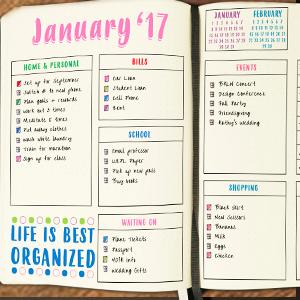 January '17
HOME & PERSONAL
Set up for September
Switch # to new phone
Plan goals + rewards
work out 3 times
Meditate 5 times
Put away clothes
wash white laundry
Train for marathon
Sign up for class
BILLS
Car Loan
Student Loan
Cell Phone
Rent
SCHOOL
Email professor
Pick up new pass
Buy books
WAITING ON
Plane Tickets
Passport
Wedding Gifts
LIFE IS BEST
ORGANIZED
JANUARY
FEBRUARY
EVENTS
Concert
Design Conference
Fall Party
Friendsgiving
Kathy's wedding
SHOPPING
Black skirt
New Scissors
Bananas
Milk
Eggs
Chicken